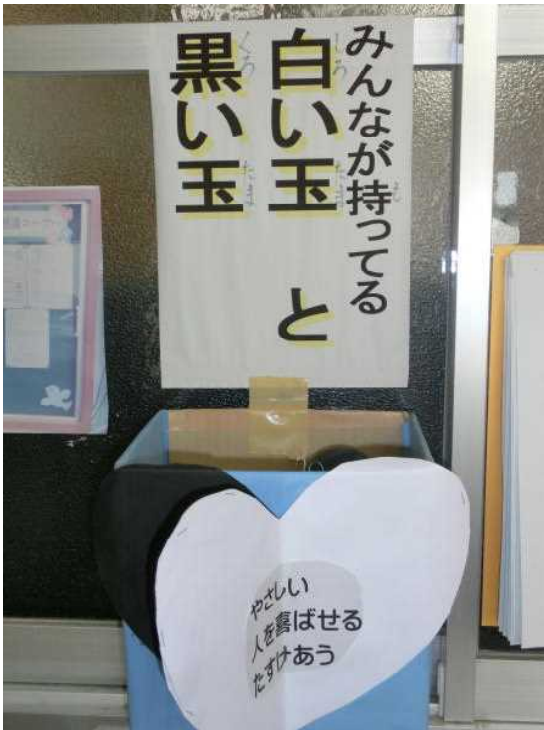 みんなが持ってる
白い玉 と
黒い玉
やさしい
人を喜ばせる
たすけあう